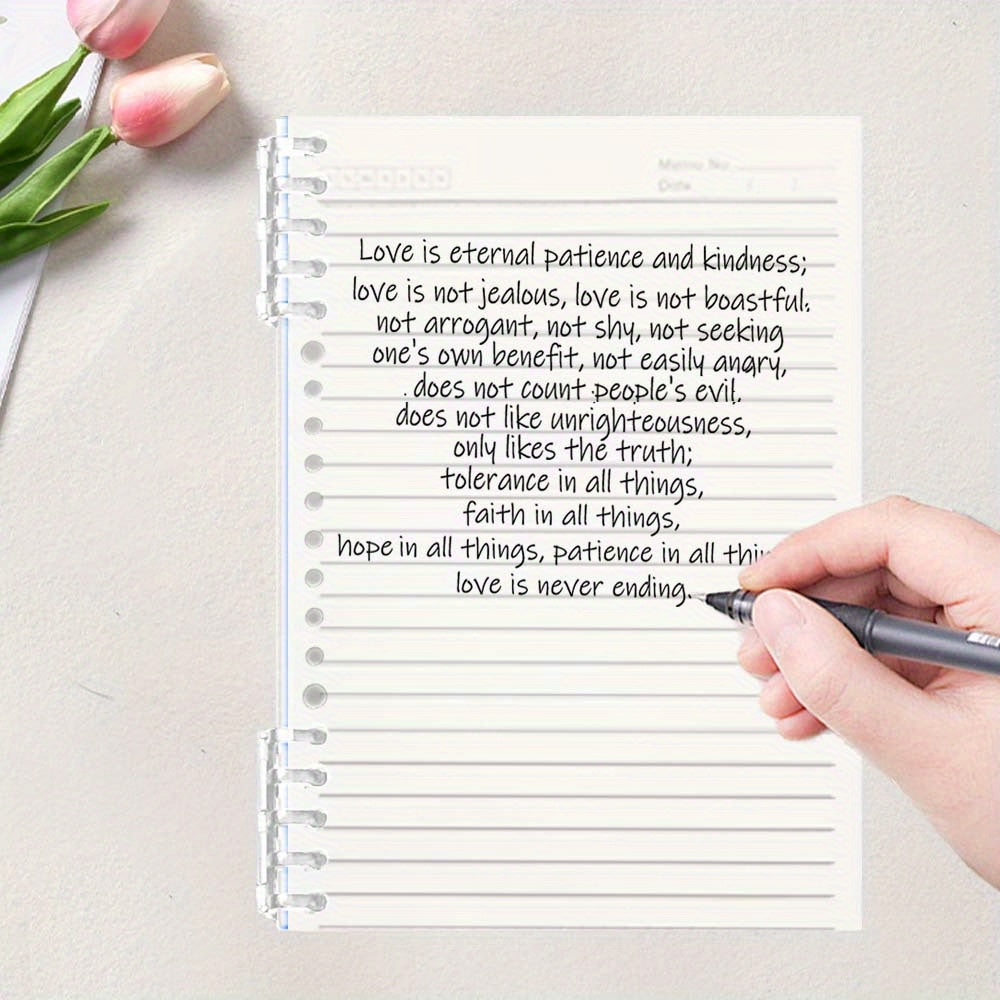 Memo No.
Date
Love is eternal patience and kindness;
love is not jealous, love is not boastful.
not arrogant, not shy, not seeking
one's own benefit, not easily angry,
. does not count people's evil.
does not like unrighteousness,
only likes the truth;
tolerance in all things,
faith in all things,
hope in all things, patience in all thin
love is never ending.